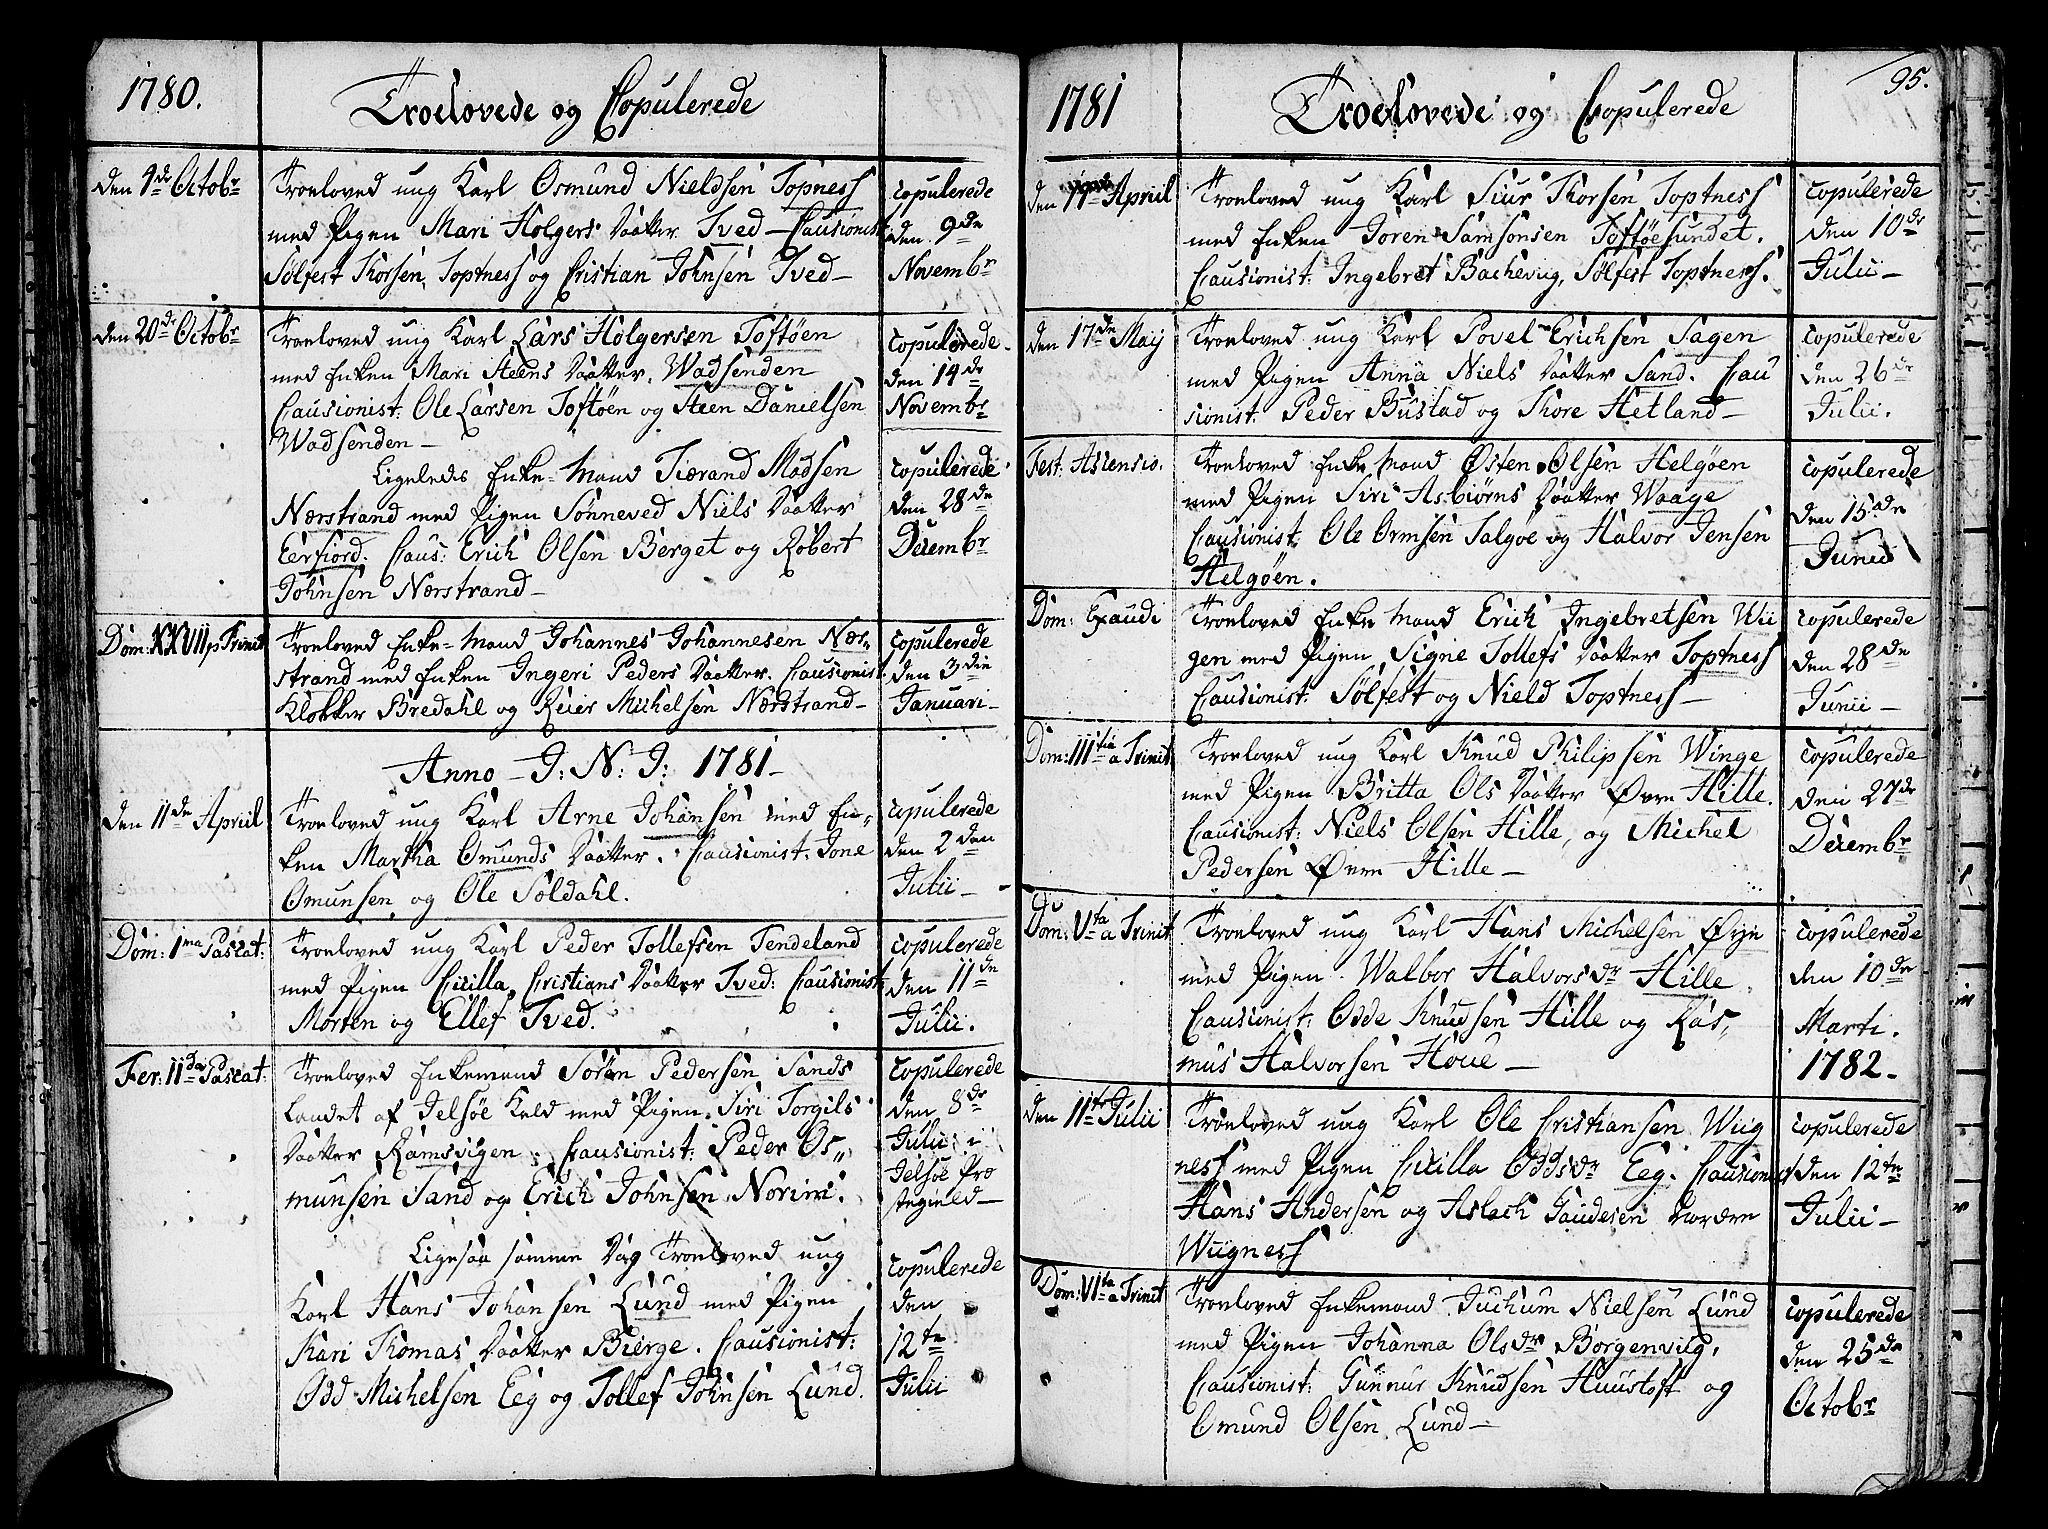 1780.
Troelovede og Copulerede
den 1de Octobr
Troeloved ung Karl Osmund Nieldsen Topness
med Pigen Mari Holgers Daatter Tved - Causionist:
Sølfest Thorsen, Toptness og Cristian Johnsen Tved -
copulerede
den 9de
Novembr
den 20de Octobr
Troeloved ung Karl Lars Holgersen Toftøen
med Enken Mari Steens Daatter, Wadsenden
Causionist: Ole Larsen Toftøen og Steen Danielsen
Wadsenden -
copulerede
den 14de
Novembr
Ligeledes Enke-Mand Tiærand Madsen
Nærstrand med Pigen Sønneved Niels Daatter
Eerfiord. Caus: Erich Olsen Berget og Robert
Johnsen Nærstrand -
copulerede
den 28de
Decembr
Dom: XXVII p Trinit
Troeloved Enke-Mand Johannes Johannesen Nær-
strand med Enken Ingeri Peders Daatter. Causionist:
Klokker Bredahl og Reier Michelsen Nærstrand -
copulerede
den 3die
Januari -
Anno - J: N: J: 1781 -
den 11de Apriil
Troeloved ung Karl Arne Johansen med En-
ken Martha Omunds Daatter. Causionist: Jone
Omunsen og Ole Søldahl.
copulerede
den 2den
Julii -
Dom: 1ma Pascat:
Troeloved ung Karl Peder Tollefsen Tendeland
med Pigen Cicilla Cristians Daatter Tved: Causionist:
Morten og Ellef Tved.
copulerede
den 11de
Julii.
Fer: IIda Pascat:
Troeloved Enkemand Søren Pedersen Sands
Landet af Jelsøe Keld med Pigen Siri Torgils
Daatter Ramsvigen. Causionist: Peder Os-
munsen Sand og Erich Johnsen Norim.
copulerede
den 8de
Julii i
Jelsøe Præ
stegield -
Ligesaa samme Dag Troeloved ung
Karl Hans Johansen Lund med Pigen
Kari Thomas Daatter Bierge. Causionist:
Odd Michelsen Eeg og Tollef Johnsen Lund.
copulerede
den
12te
Julii
1781
Troelovede og Copulerede
95.
den 11te Apriil
Troeloved ung Karl Siur Thorsen Toptness
med Enken Joren Samsonsen Toftøesundet.
Causionist: Ingebret Bachevig, Sølfest Toptness.
copulerede
den 10de
Julii -
den 17de May
Troeloved ung Karl Povel Erichsen Sagen
med Pigen Anna Niels Daatter Sand. Cau
sionist: Peder Bustad og Thore Hetland -
copulerede
den 26de
Julii.
Fest: Ascensio.
Troeloved Enke Mand Østen Olsen Helgøen
med Pigen Siri Asbiørns Daatter Waage
Causionist: Ole Ormsen Talgøe og Halvor Jensen
Helgøen.
copulerede
den 15de
Junii
Dom: Exaudi
Troeloved Enke Mand Erich Ingebretsen Wii
gen med Pigen Signe Tollefs Daatter Toptness
Causionist: Sølfest og Nield Toptness -
copulerede
den 28de
Junii -
Dom: IIItia a Trinit
Troeloved ung Karl Knud Philipsen Winge
med Pigen Britta Ols Daatter Øvre Hille.
Causionist: Niels Olsen Hille, og Michel
Pedersen Øvre Hille -
copulerede
den 27de
Decembr
Dom: Vta a Trinit
Troeloved ung Karl Hans Michelsen Øye
med Pigen Walbor Halvorsdr Hille
Causionist: Odde Knudsen Hille og Ras-
mus Halvorsen Houe -
copulerede
den 10de
Marti.
1782 -
den 11te Julii
Troeloved ung Karl Ole Cristiansen Wiig
ness med Pigen Cicilla Oddsdr Eeg. Causionist
Hans Andersen og Aslach Gaudesen Nordre
Wiigness
copulerede
den 12te
Julii -
Dom: VIta a Trinit
Troeloved Enkemand Juchum Nielsen Lund
med Pigen Johanna Olsdr Borgenviig,
Causionist: Gunnur Knudsen Huustoft og
Omund Olsen Lund -
copulerede
den 25de
Octobr